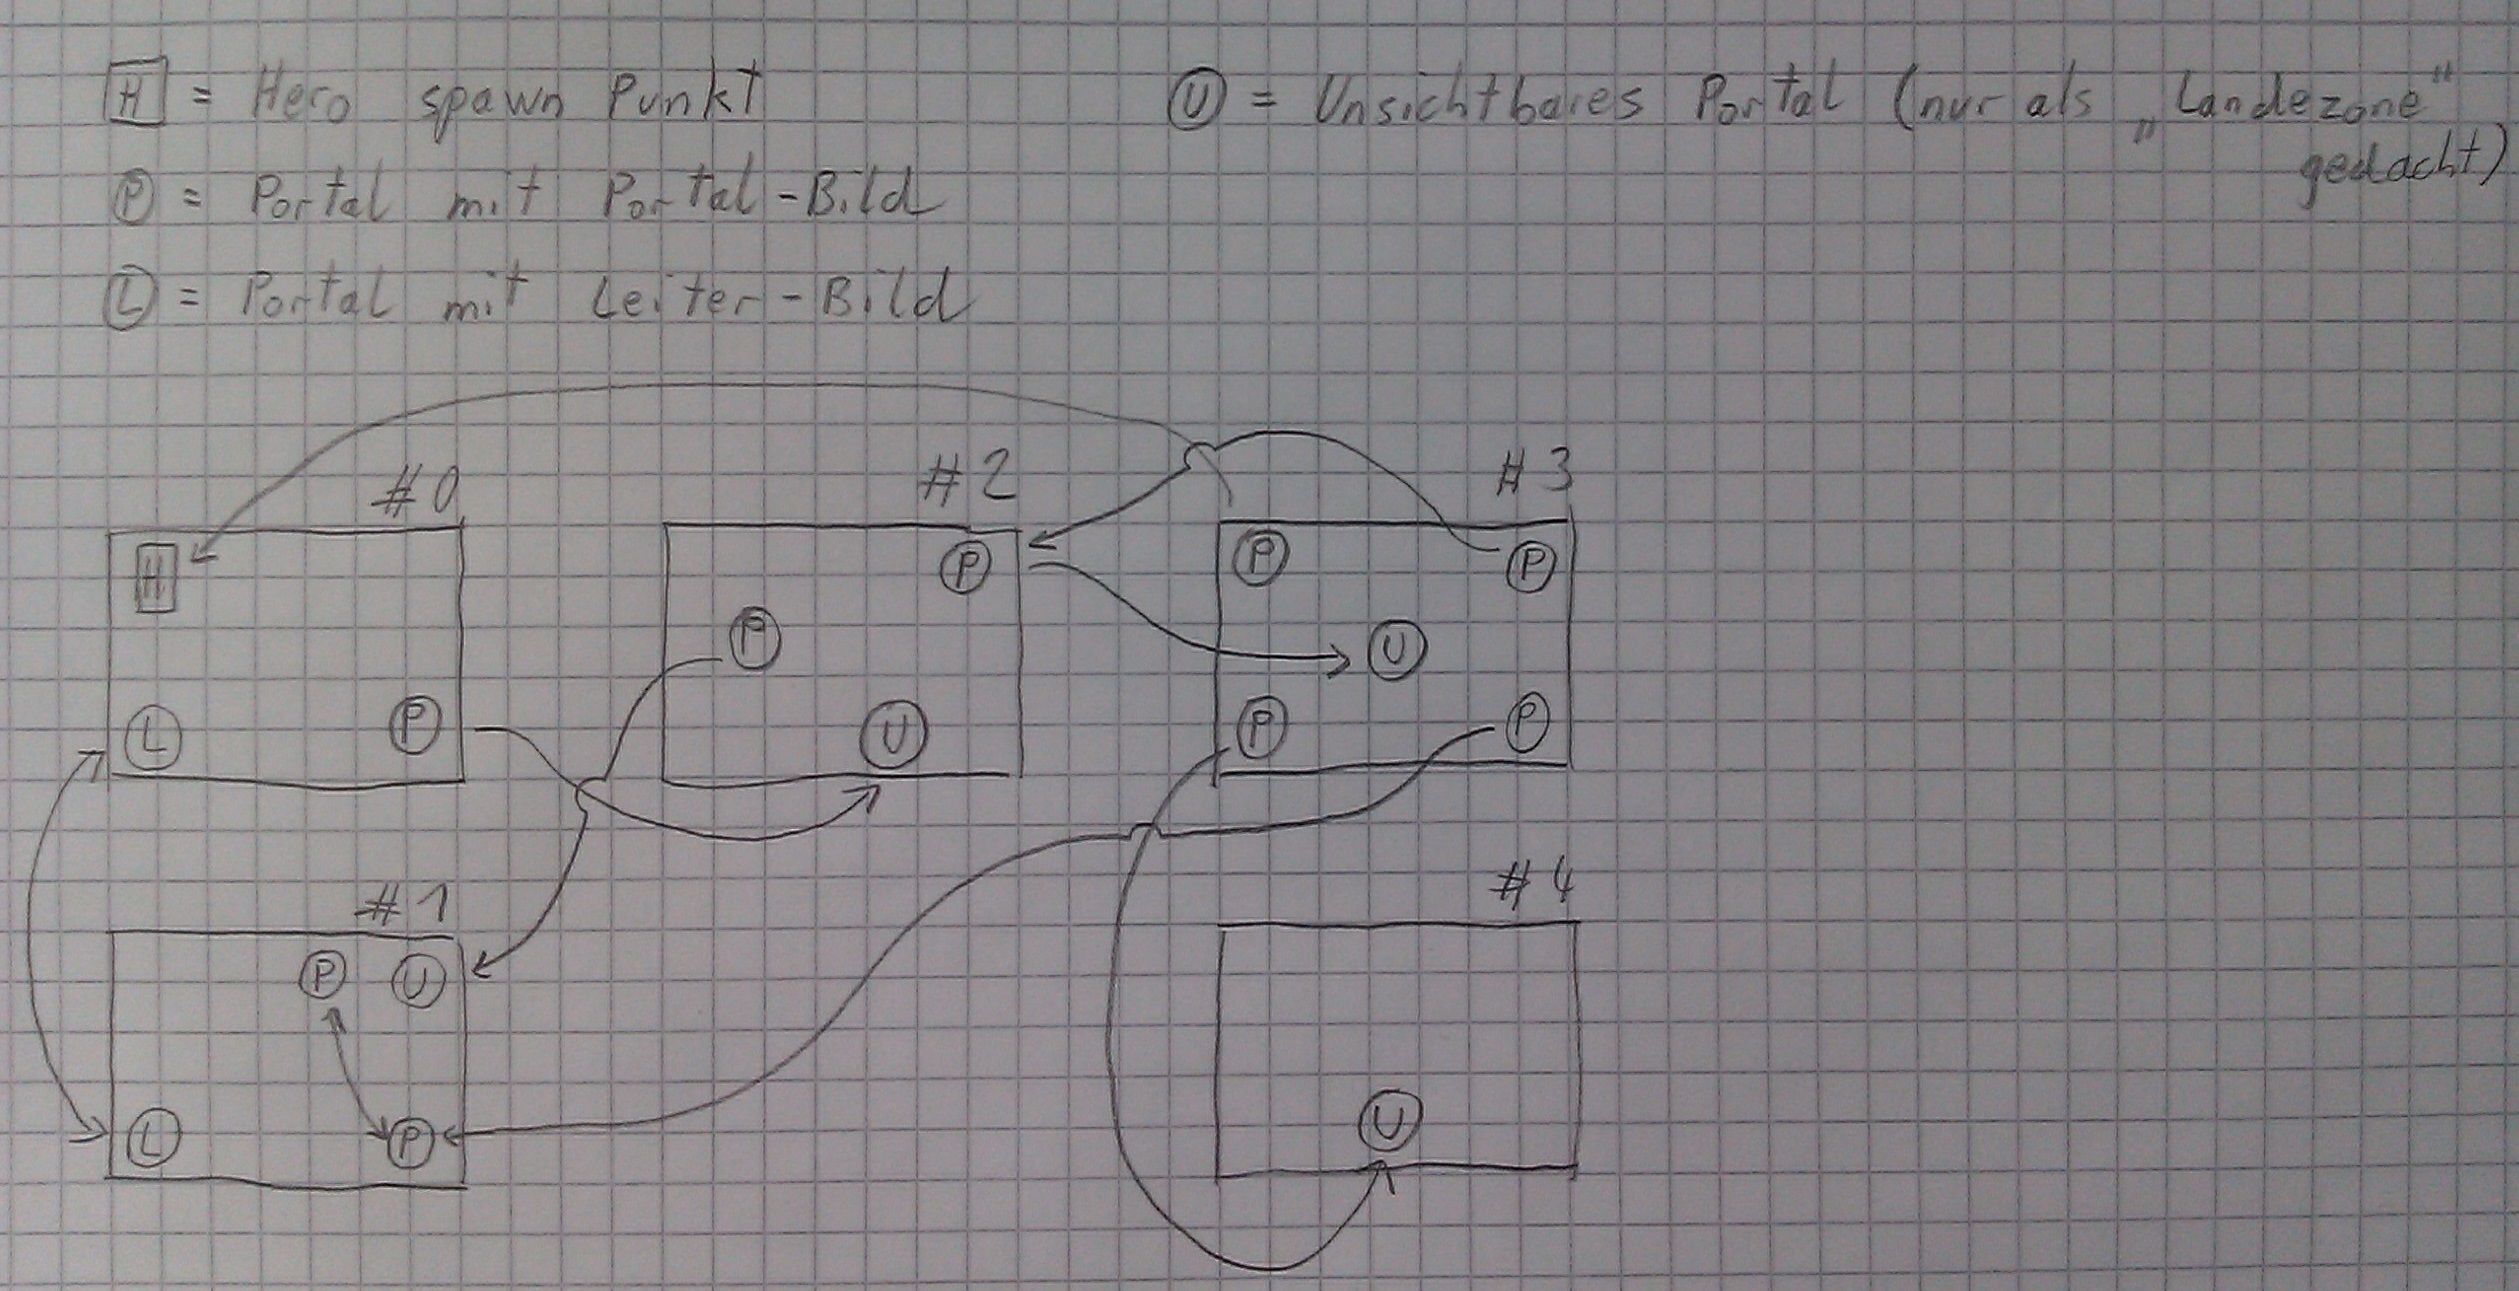 H = Hero spawn Punkt
P = Portal mit Portal-Bild
L = Portal mit Leiter-Bild
U = Unsichtbares Portal (nur als „Landezone"
gedacht)
#0
H
L P
#2
P
P
U
#3
P P
U
P P
#1
P U
L P
#4
U